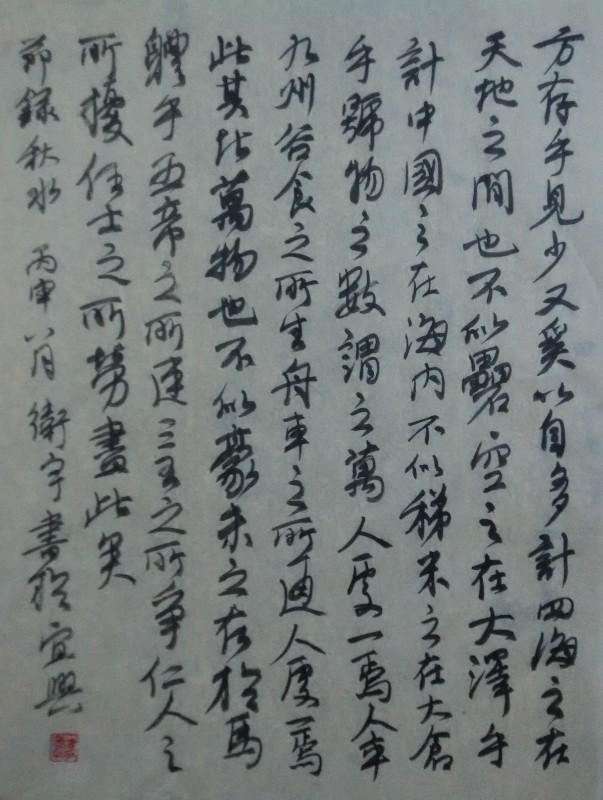 方存乎見少又奚以自多計四海之在
天地之間也不似礨空之在大澤乎
計中國之在海內不似稊米之在大倉
乎號物之數謂之萬人處一焉人卒
九州谷食之所生舟車之所通人處一焉
此其比萬物也不似豪末之在於馬
體乎五帝之所連三王之所爭仁人之
所擾任士之所勞盡此矣
節錄秋水 丙申八月衛宇書於宜興